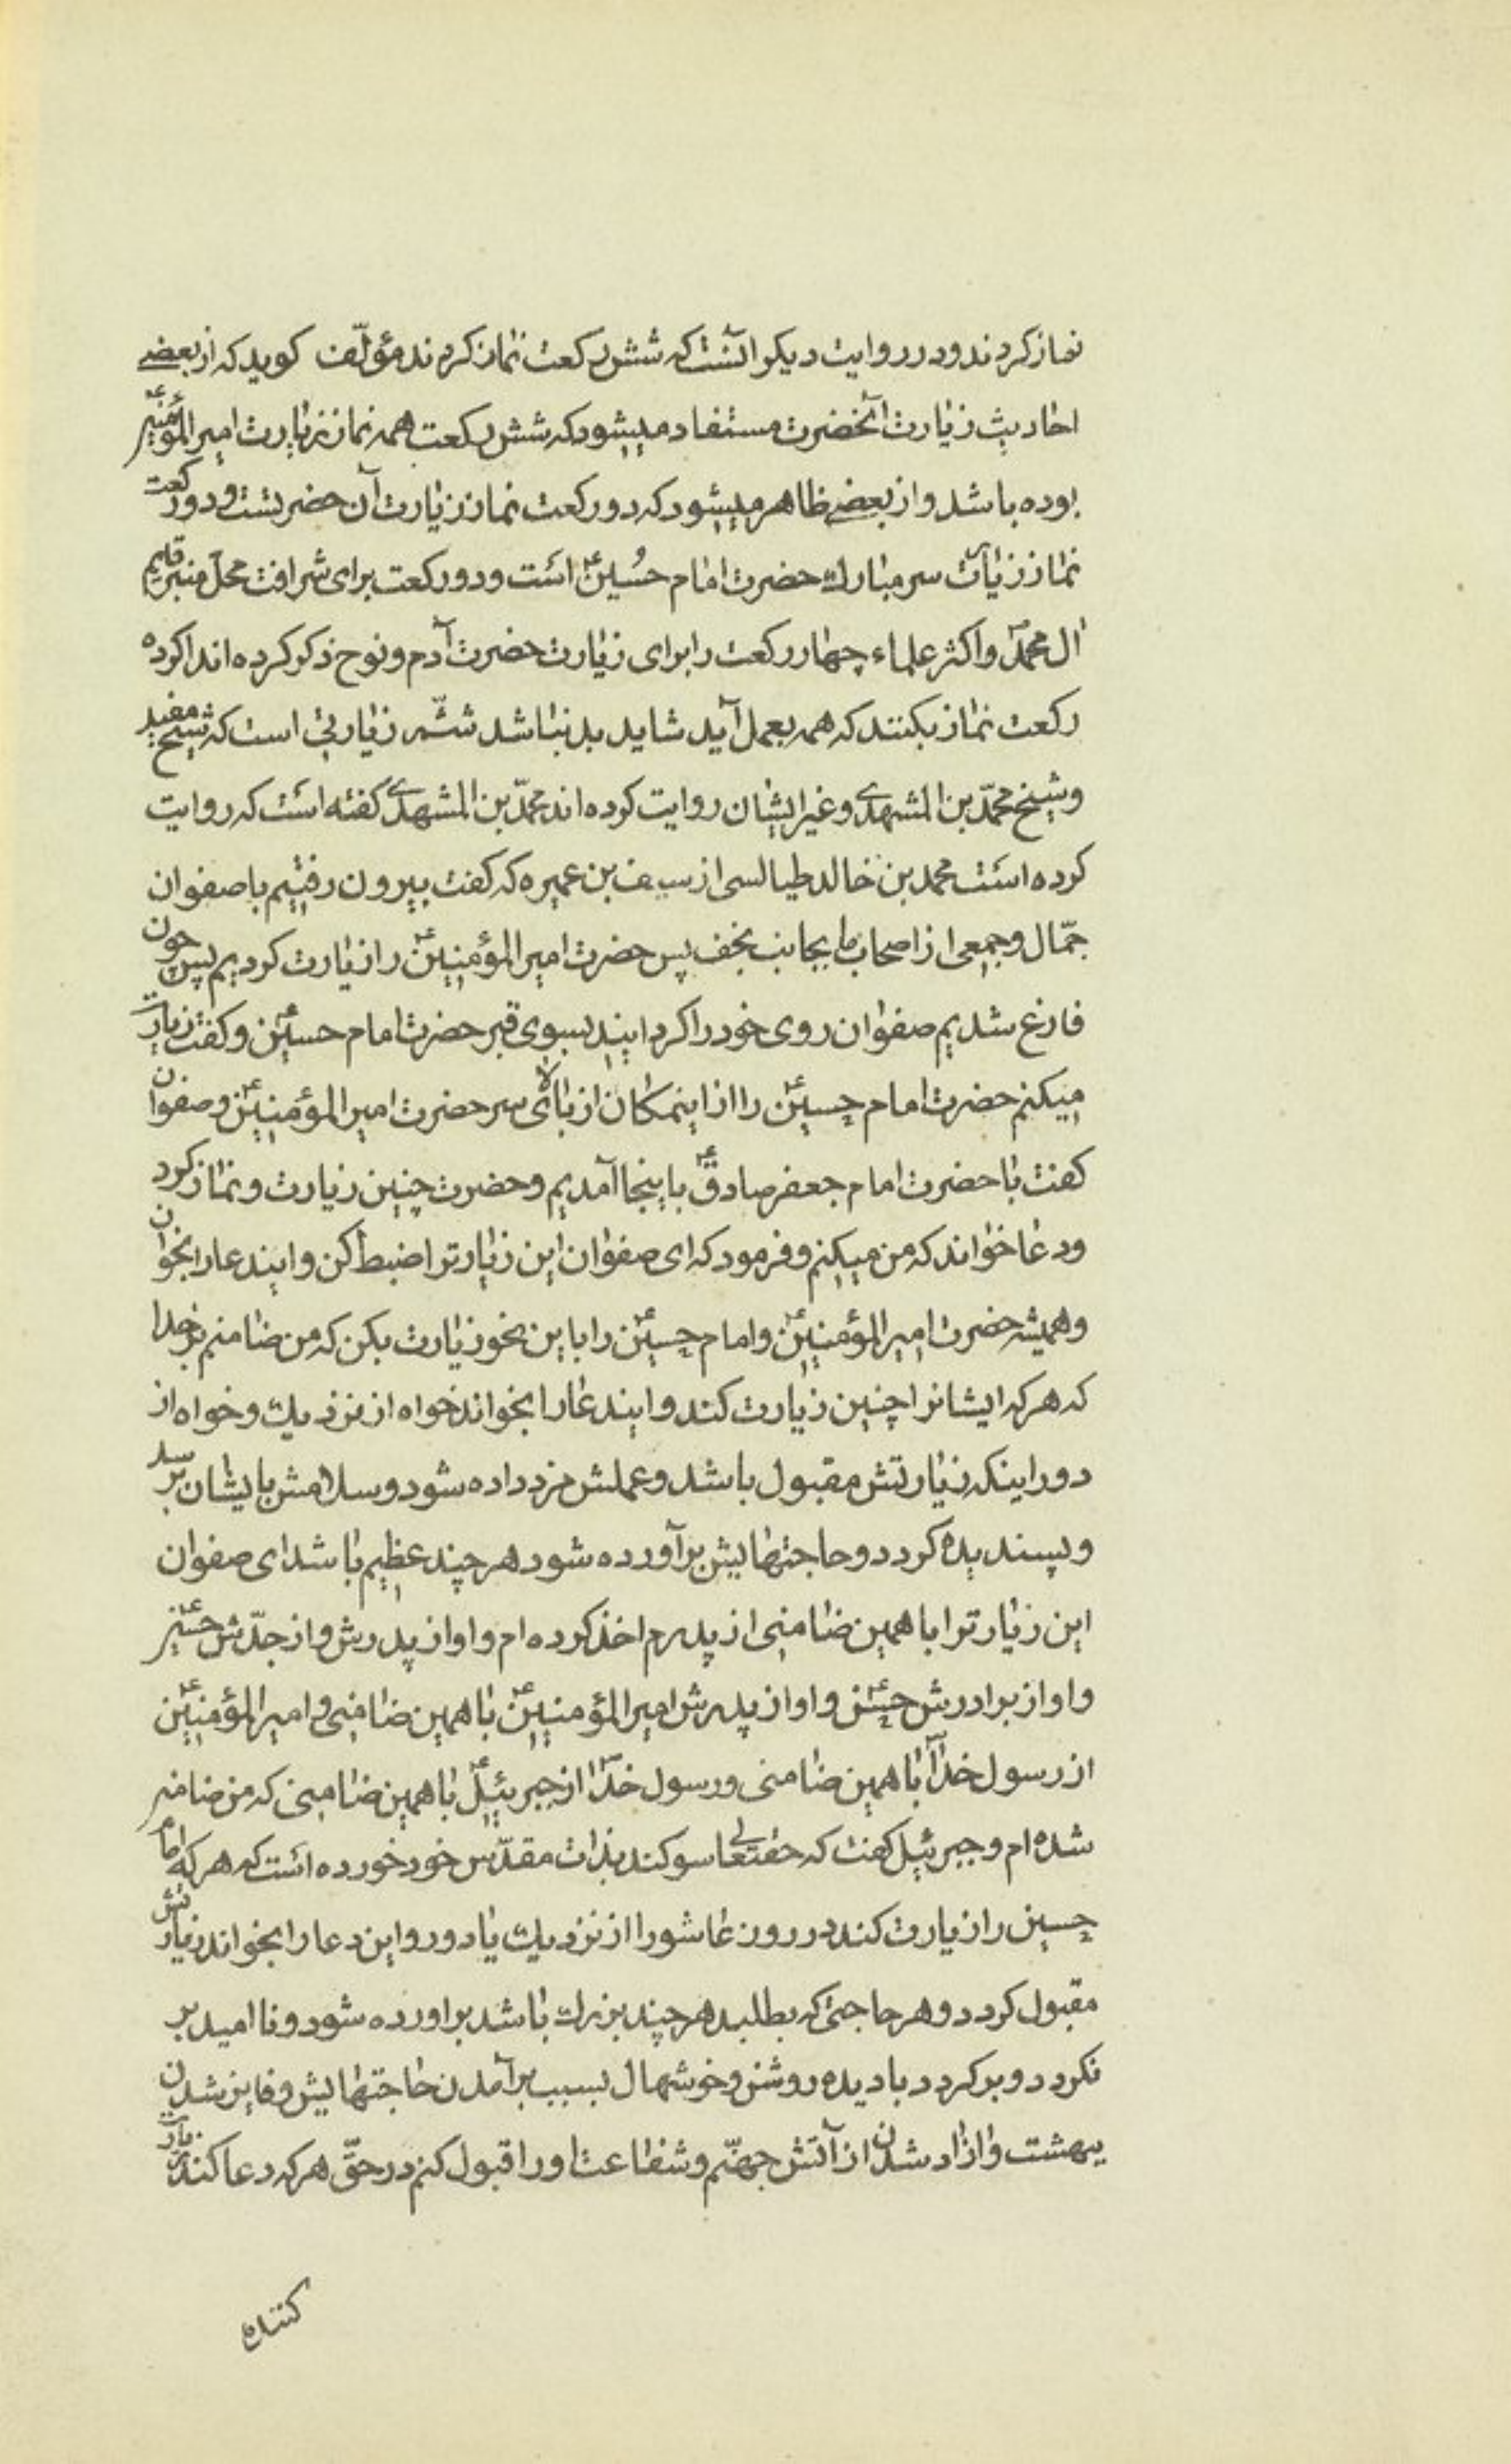 نماز کردند و در روایت دیکر انست که شش رکعت نماز کردند مؤلّف کوید که از بعضے
احادیث زیارت آنحضرت مستفاد میشود که شش رکعت همه نماز زیارت امیر المؤمنینؑ
بوده باشد و از بعضے ظاهر میشود که دو رکعت نماز زیارت آن حضرتست و دو رکعت
نماز زیارت سر مبارك حضرت امام حُسینؑ است و دو رکعت برای شرافت محلّ منبر قایم
ال محمدؐ و اکثر علماء چهار رکعت را برای زیارت حضرت آدم و نوح ذکر کرده اند اکر ده
رکعت نماز بکنند که همه بعمل آید شاید بد نباشد ششّم زیارتی است که شیخ مفید
و شیخ محمّد بن المشهدے و غیر ایشان روایت کرده اند محمّد بن المشهدے کفته است که روایت
کرده است محمد بن خالد طیالسی از سیف بن عمیره که کفت بیرون رفتیم با صفوان
جمّال و جمعی از اصحاب ما بجانب نجف پس حضرت امیر المؤمنینؑ را زیارت کردیم پس چون
فارغ شدیم صفوان روی خود را کردانید بسوی قبر حضرت امام حسینؑ و کفت زیارت
میکنم حضرت امام حسینؑ را از اینمکان از بالای سر حضرت امیر المؤمنینؑ و صفوان
کفت با حضرت امام جعفر صادقؑ باینجا آمدیم و حضرت چنین زیارت و نماز کرد
و دعا خواند که من میکنم و فرمود که ای صفوان این زیارترا ضبط کن و ایندعا را بخوان
و همیشه حضرت امیر المؤمنینؑ و امام حسینؑ را باین نحو زیارت بکن که من ضامنم بر خدا
که هر که ایشانرا چنین زیارت کند و ایندعا را بخواند خواه از نزدیك و خواه از
دور اینکه زیارتش مقبول باشد و عملش مزد داده شود و سلامش بایشان برسد
و پسندیده کردد و حاجتهایش برآورده شود هر چند عظیم باشد ای صفوان
این زیارترا با همین ضامنی از پدرم اخذ کرده ام و او از پدرش و از جدّش حسینؑ
و او از برادرش حسنؑ و او از پدرش امیر المؤمنینؑ با همین ضامنی و امیر المؤمنینؑ
از رسول خداؐ با همین ضامنی و رسول خداؐ از جبرئیلؑ با همین ضامنی که من ضامن
شده ام و جبرئیل کفت که حقتعالی سوکند بذات مقدّس خود خورده است که هر که امام
حسین را زیارت کند در روز عاشورا از نزدیك یا دور و این دعا را بخواند زیارتش
مقبول کردد و هر حاجتی که بطلبد هر چند بزرك باشد براورده شود و ناامید بر
نکردد و برکردد با دیده روشن و خوشحال بسبب برآمدن حاجتهایش و فایز شدن
ببهشت و ازاد شدن از آتش جهنّم و شفاعت او را قبول کنم در حقّ هر که دعا کند زیارت
کننده